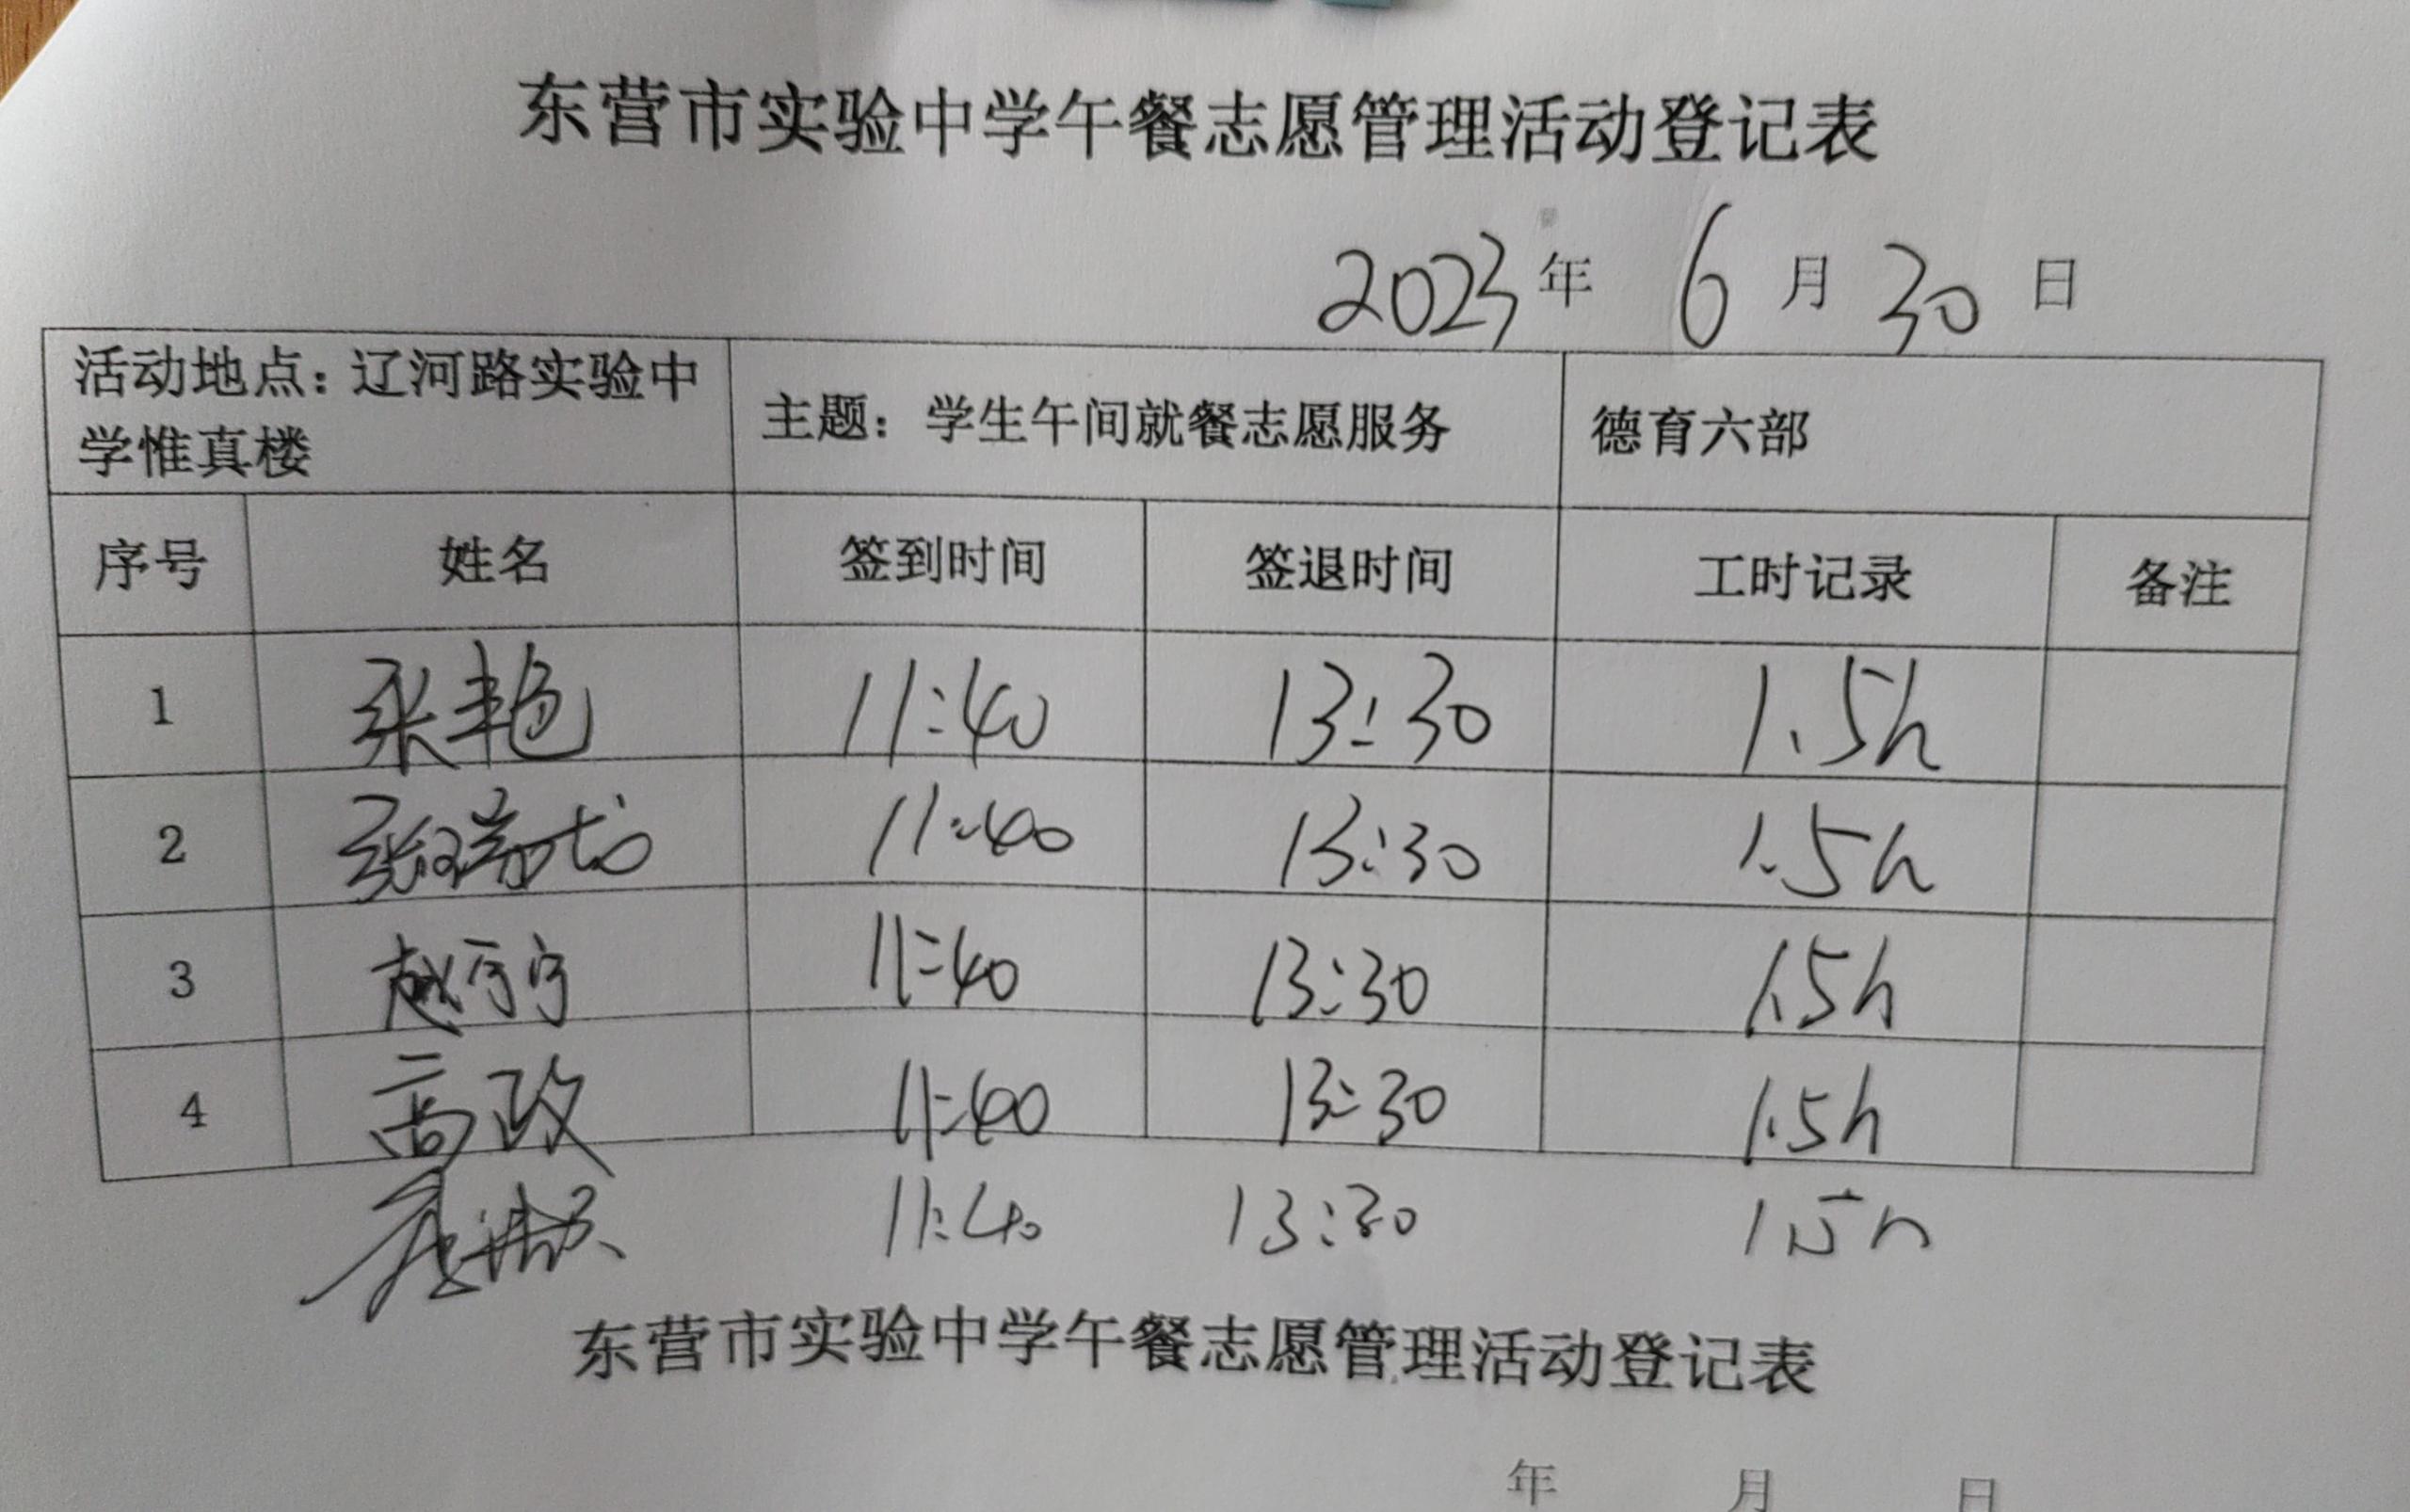 东营市实验中学午餐志愿管理活动登记表
2023年 6月30日
活动地点：辽河路实验中
学惟真楼
主题：学生午间就餐志愿服务
德育六部
序号 姓名 签到时间 签退时间 工时记录 备注
1 张艳 11:40 13:30 1.5h
2 11:40 13:30 1.5h
3 赵宁宁 11:40 13:30 1.5h
4 高政 11:40 13:30 1.5h
11:40 13:30 1.5h
东营市实验中学午餐志愿管理活动登记表
年 月 日